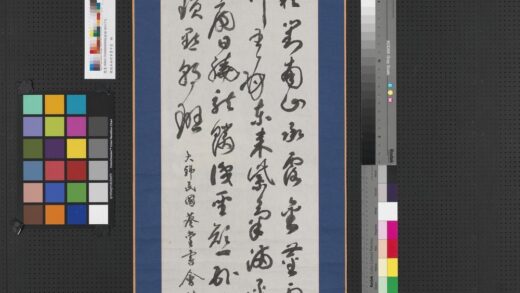 對南山承露金莖
王母東來紫氣滿
扇日繞龍鱗識聖顏一臥
瑣點朝班
大韓民國藝堂書會